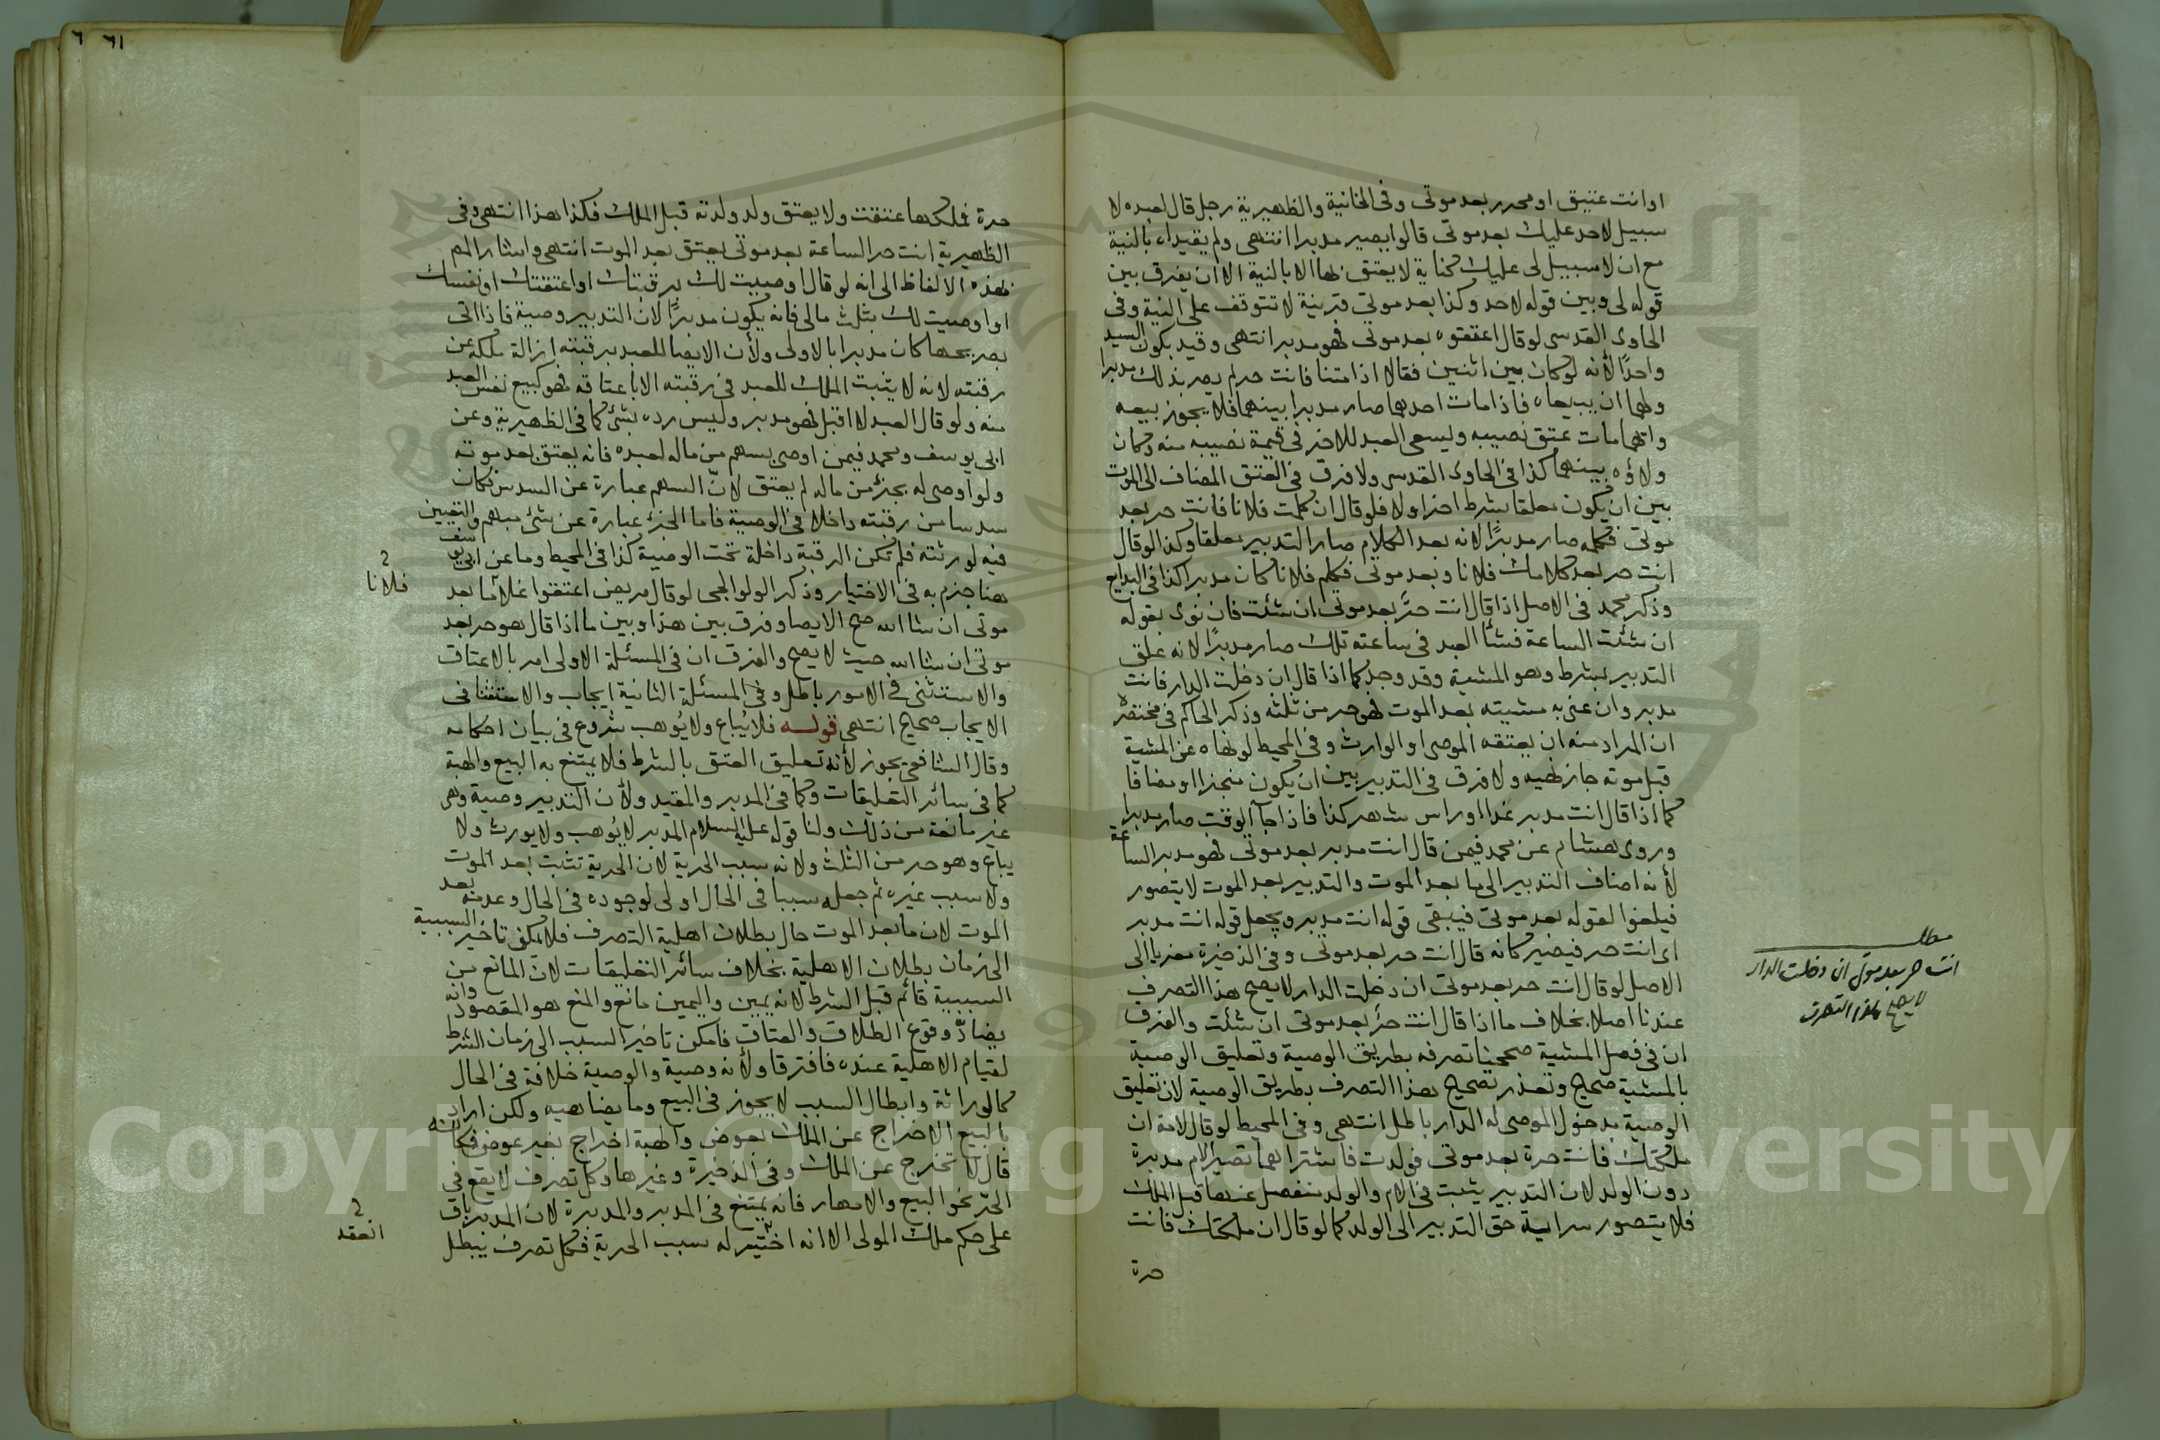 او انت عتيق او محرر بعد موتي وفي الخانية والظهيرية رجل قال لعبده لا
سبيل لاحد عليك بعد موتي قالوا يصير مدبرا انتهى ولم يقيداه بالنية
مع ان لا سبيل لي عليك كناية لا يعتق بها الا بالنية الا ان يفرق بين
قوله لي وبين قوله لاحد وكذا بعد موتي قرينة لا تتوقف على النية وفي
الحاوى القدسى لو قال اعتقوه بعد موتي فهو مدبر انتهى وقيد بكون السيد
واحدًا لأنه لو كان بين اثنين فقالا اذا متنا فانت حر لم يصر بذلك مدبرا
ولهما ان يبيعاه فاذا مات احدهما صار مدبرا بينهما فلا يجوز بيعه
وايهما مات عتق نصيبه ويسعى العبد للاخر في قيمة نصيبه منه وكان
ولاؤه بينهما كذا في الحاوى القدسى ولا فرق في العتق المضاف الى الموت
بين ان يكون معلقا بشرط اخر او لا فلو قال ان كلمت فلانا فانت حر بعد
موتي فكلمه صار مدبرًا لانه بعد الكلام صار التدبير معلقا وكذا لو قال
انت حر بعد كلامك فلانا وبعد موتي فكلم فلانا كان مدبرا كذا في البدايع
وذكر محمد في الاصل اذا قال انت حرٌّ بعد موتي ان شئت فان نوى بقوله
ان شئت الساعة فشأ العبد في ساعته تلك صار مدبرًا لانه علق
التدبير بشرط وهو المشية وقد وجد كما اذا قال ان دخلت الدار فانت
مدبر وان عنى به مشيته بعد الموت فهو حر من ثلثه وذكر الحاكم في مختصره
ان المراد منه ان يعتقه الموصى او الوارث وفي المحيط لو نهاه عن المشية
قبل موته جاز نهيه ولا فرق في التدبير بين ان يكون منجزا او مضافا
كما اذا قال انت مدبر غدا او راس شهر كذا فاذا جآ الوقت صار مدبرا
وروى هشام عن محمد فيمن قال انت مدبر بعد موتي فهو مدبر الساعة
لأنه اضاف التدبير الى ما بعد الموت والتدبير بعد الموت لا يتصور
فيلغوا لقوله بعد موتي فيبقى قوله انت مدبر ويجعل قوله انت مدبر
اى انت حر فيصير كانه قال انت حر بعد موتي وفي الذخيرة معزيا الى
الاصل لو قال انت حر بعد موتي ان دخلت الدار لا يصح هذا التصرف
عندنا اصلا بخلاف ما اذا قال انت حرٌ بعد موتي ان شئت والفرق
ان في فصل المشية صححنا تصرفه بطريق الوصية وتعليق الوصية
بالمشية صحيح وتعذر تصحيح هذا التصرف بطريق الوصية لان تعليق
الوصية بدخول الموصى له الدار باطل انتهى وفي المحيط لو قال لامة ان
ملكتك فانت حرة بعد موتي فولدت فاشتراهما تصير الام مدبرة
دون الولد لان التدبير يثبت في الام والولد منفصل عنها قبل الملك
فلا يتصور سراية حق التدبير الى الولد كما لو قال ان ملكتك فانت
حرة
مطلب
انت حر بعد موتي ان دخلت الدار
لا يصح هذا التصرف
٦١ ٦
حرة فملكها عتقت ولا يعتق ولد ولدته قبل الملك فكذا هذا انتهى وفي
الظهيرية انت حر الساعة بعد موتي يعتق بعد الموت انتهى واشار المص
بهذه الالفاظ الى انه لو قال اوصيت لك برقبتك او اعتقتك او نفسك
او اوصيت لك بثلث مالي فانه يكون مدبرًا لان التدبير وصية فاذا اتى
بصريحها كان مدبرا بالاولى ولأن الايصا للعبد برقبته ازالة ملكه عن
رقبته لانه لا يثبت الملك للعبد في رقبته الا باعتاقه فهو كبيع نفس العبد
منه ولو قال العبد لا اقبل فهو مدبر وليس رده بشئ كما في الظهيرية وعن
ابي يوسف ومحمد فيمن اوصى بسهم من ماله لعبده فانه يعتق بعد موته
ولو اوصى له بجزء من ماله لم يعتق لانّ السهم عبارة عن السدس فكان
سدسا من رقبته داخلا في الوصية فاما الجزء عبارة عن شئ مبهم والتعيين
فيه لورثته فلم تكن الرقبة داخلة تحت الوصية كذا في المحيط وما عن ابي يوسف
هنا جزم به في الاختيار وذكر الولوالجى لو قال مريض اعتقوا غلاما بعد
فلانا
موتي ان شا الله صح الايصا وفرق بين هذا وبين ما اذا قال هو حر بعد
موتي ان شا الله حيث لا يصح والفرق ان في المسئلة الاولى امر بالاعتاق
والاستثنى في الامور باطل وفي المسئلة الثانية ايجاب والاستثنا في
الايجاب صحيح انتهى قوله فلا يُباع ولا يُوهب شروع في بيان احكامه
وقال الشافعى يجوز لأنه تعليق العتق بالشرط فلا يمتنع به البيع والهبة
كما في سائر التعليقات وكما في المدبر والمقيد ولأن التدبير وصية وهي
غير مانعة من ذلك ولنا قوله عليه السلام المدبر لا يُوهب ولا يورث ولا
يباع وهو حر من الثلث ولانه سبب الحرية لان الحرية تثبت بعد الموت
ولا سبب غيره ثم جعله سببا في الحال اولى لوجوده في الحال وعدمه بعد
الموت لان ما بعد الموت حال بطلان اهلية التصرف فلا يمكن تاخير السببية
الى زمان بطلان الاهلية بخلاف سائر التعليقات لانّ المانع من
السببية قائم قبل الشرط لانه يمين واليمين مانع والمنع هو المقصود وانه
يضادّ وقوع الطلاق والعتاق فامكن تاخير السبب الى زمان الشرط
لقيام الاهلية عنده فافترقا ولأنه وصية والوصية خلافة في الحال
كالوراثة وابطال السبب لا يجوز في البيع وما يضاهيه ولكن اراد
بالبيع الاخراج عن الملك بعوض والهبة اخراج بغير عوض فكانه
قال لا تخرج عن الملك وفي الذخيرة وغيرها وكل تصرف لا يقع في
الحّر نحو البيع والامهار فانه يمتنع في المدبر والمدبرة لان المدبر باق
على حكم ملك المولى الا انه له سبب الحرية فكل تصرف يبطل
انعقد